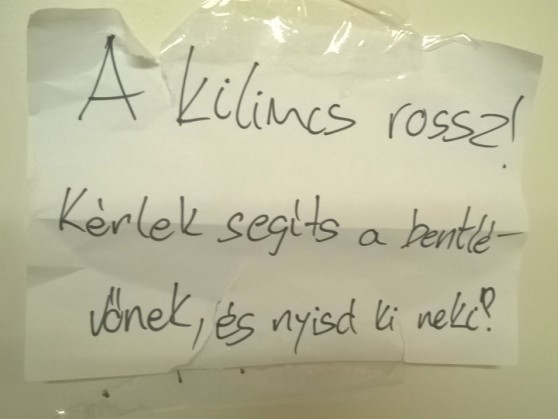 A kilimcs rossz!
Kérlek segíts a bentlé-
vőnek, és nyisd ki neki?